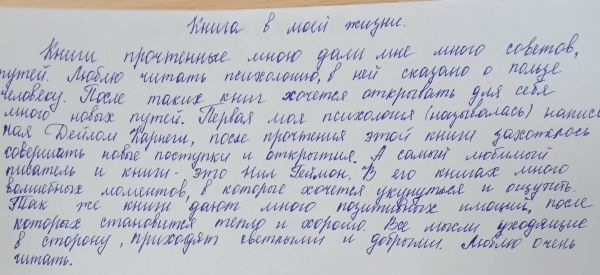 Книга в моей жизни.
Книги прочтенные мною дали мне много советов,
путей. Люблю читать психологию, в ней сказано о пользе
человеку. После таких книг хочется открывать для себя
много новых путей. Первая моя психология (называлась) написан
ная Дейлом Карнеги, после прочтения этой книги захотелось
совершать новые поступки и открытия. А самый любимый
писатель и книги - это Нил Гейман. В его книгах много
волшебных моментов, в которые хочется укунуться и ощутить.
Так же книги дают много позитивных имоций, после
которых становится тепло и хорошо. Все мысли уходящие
в сторону, приходят светлыми и добрыми. Люблю очень
читать.